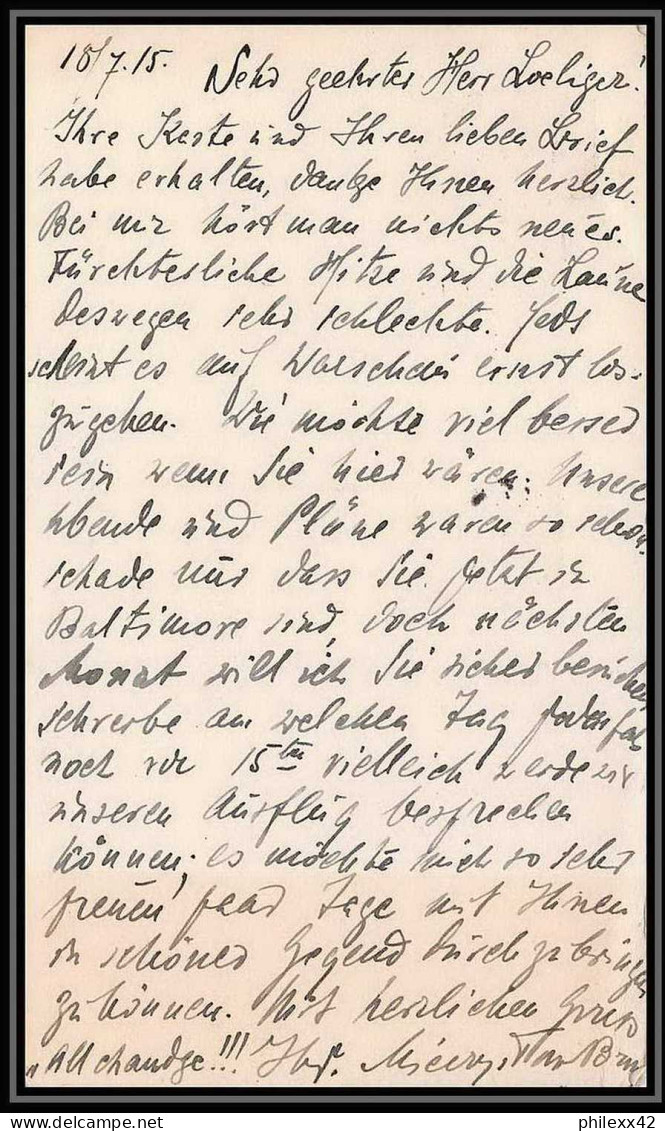 18/7.15. Sehr geehrter Herr Loeliger!
Ihre Karte und Ihren lieben Brief
habe erhalten, danke Ihnen herzlich.
Bei mir hört man nichts neues.
Fürchterliche Hitze und die Laune
deswegen sehr schlechte. Jetzt
scheint es auf Warschau ernst los-
zugehen. Wie möchte viel besser
sein wenn Sie hier wären. Unsere
Abende und Pläne waren so schön.
schade nur dass Sie jetzt in
Baltimore sind, doch nächsten
Monat will ich Sie sicher besuchen
schreibe an welchen Tag jedenfals
noch vor 15ten vielleich werde wir
unseren Ausflug besprechen
können; es möchte mich so sehr
freuen paar Tage mit Ihnen
in schöner Gegend durchzubringen
zu können. Mit herzlichen Gruss
"All chandge!!! Ihr.
philexx42